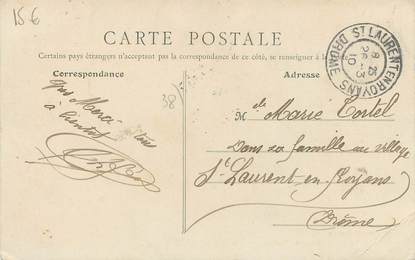 15€
CARTE POSTALE
Certains pays étrangers n'acceptant pas la correspondance de ce côté, se renseigner à la
Correspondance
Adresse
38
ST LAURENT EN ROYANS
DROME
Merci
à
Mlle Marie Tortel
Dans sa famille au village
St Laurent en Royans
Drôme